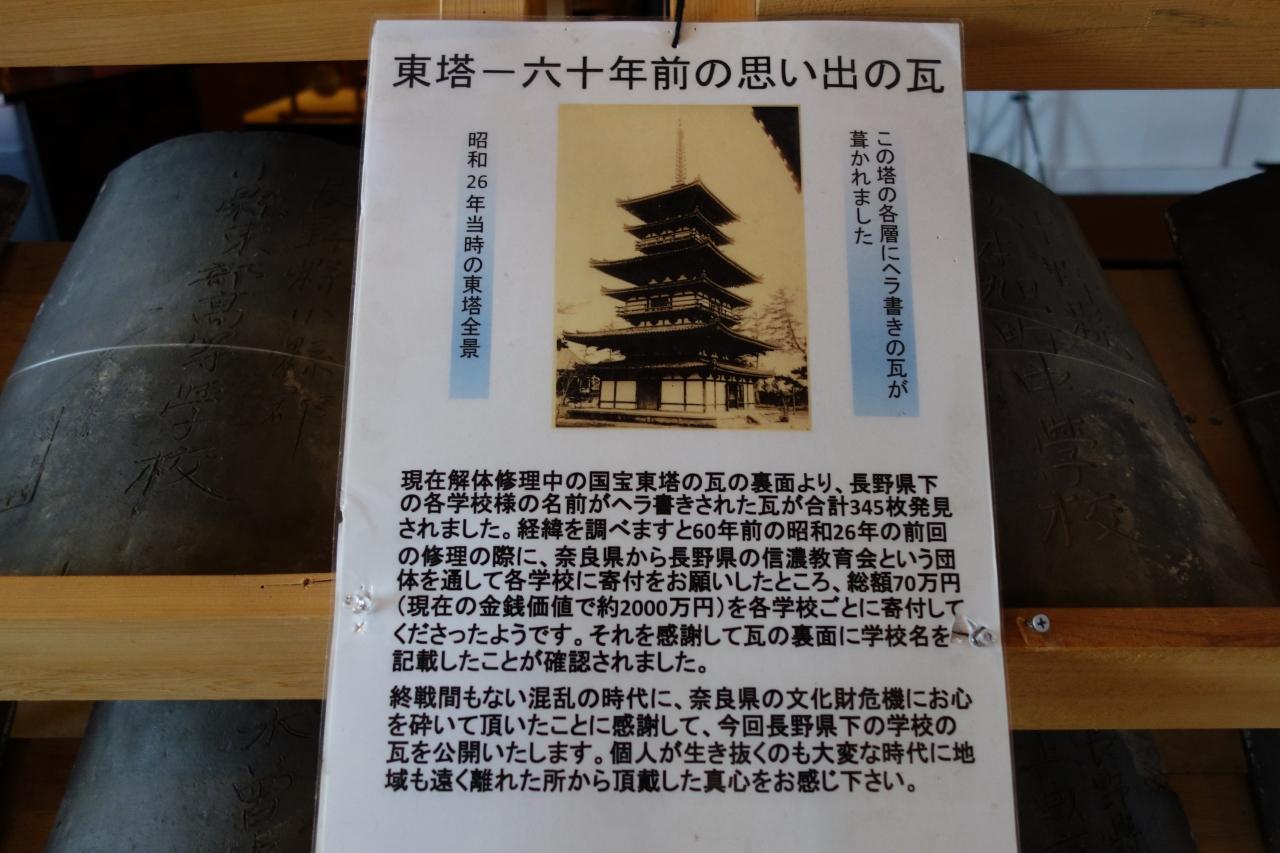 東塔－六十年前の思い出の瓦
この塔の各層にヘラ書きの瓦が
葺かれました
昭和26年当時の東塔全景
現在解体修理中の国宝東塔の瓦の裏面より、長野県下
の各学校様の名前がヘラ書きされた瓦が合計345枚発見
されました。経緯を調べますと60年前の昭和26年の前回
の修理の際に、奈良県から長野県の信濃教育会という団
体を通して各学校に寄付をお願いしたところ、総額70万円
（現在の金銭価値で約2000万円）を各学校ごとに寄付して
くださったようです。それを感謝して瓦の裏面に学校名を
記載したことが確認されました。
終戦間もない混乱の時代に、奈良県の文化財危機にお心
を砕いて頂いたことに感謝して、今回長野県下の学校の
瓦を公開いたします。個人が生き抜くのも大変な時代に地
域も遠く離れた所から頂戴した真心をお感じ下さい。
東部高等学校
中学校
長野県